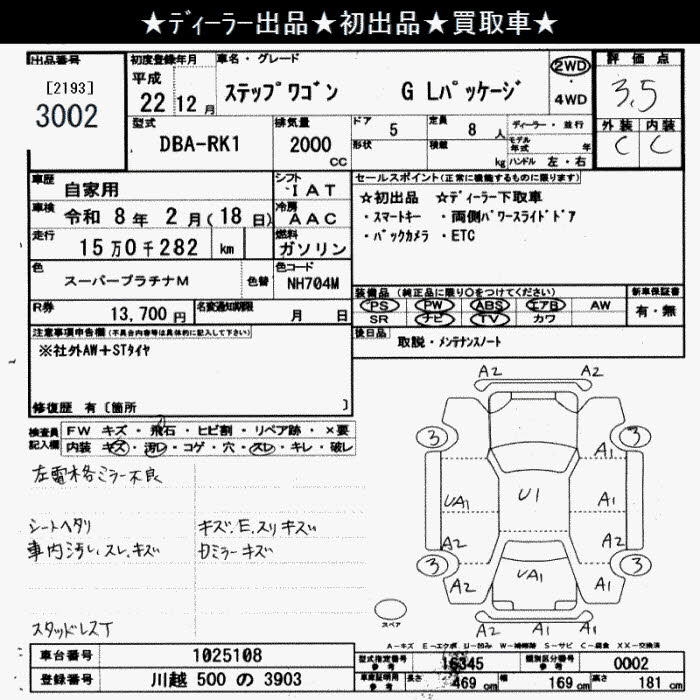 ★ディーラー出品★初出品★買取車★
出品番号
[2193]
3002
初度登録年月
平成
22年12月
車名・グレード
ステップワゴン G Lパッケージ
2WD
・
4WD
評価点
3.5
外装 内装
C C
型式
DBA-RK1
排気量
2000
CC
ドア 5
形状
定員 8 人
積載 kg
ディーラー・並行
モデル年式 年
ハンドル 左・右
車歴 自家用
シフト
IAT
車検 令和 8年 2月(18日)
冷房
AAC
走行 15万0千282 km
燃料
ガソリン
色 スーパープラチナM 色替
色コード
NH704M
R券 13,700円
名変通知期限 月 日
セールスポイント(正常に機能するものに限ります)
☆初出品 ☆ディーラー下取車
・スマートキー ・両側パワースライドドア
・バックカメラ ・ETC
装備品(純正品に限り○をつけてください)
PS PW ABS エアB AW
SR ナビ TV カワ
新車保証書
有・無
後日品 取説・メンテナンスノート
注意事項申告欄(不具合内容等は具体的に記入して下さい)
※社外AW+STタイヤ
修復歴 有〔箇所 〕
検査員記入欄
FW キズ・飛石・ヒビ割・リペア跡・×要
内装 キズ・汚レ・コゲ・穴・スレ・キレ・破レ
左電格ミラー不良
シートヘタリ
車内汚レ、スレ、キズ
キズ、E、スリキズ
カミラーキズ
スタッドレスT
A2 A2
3 3
A1
UA1 U1 A1
A2 A2
3 3
A2 UA1 A2
A2 A1 A2
スペア
A-キズ E-エクボ U-凹み W-補修跡 S-サビ C-腐食 XX-交換済
車台番号 1025108
登録番号 川越 500 の 3903
型式指定番号
参考
16345
類別区分番号
参考
0002
車庫証明用
参考
長さ 469 cm 幅 169 cm 高さ 181 cm